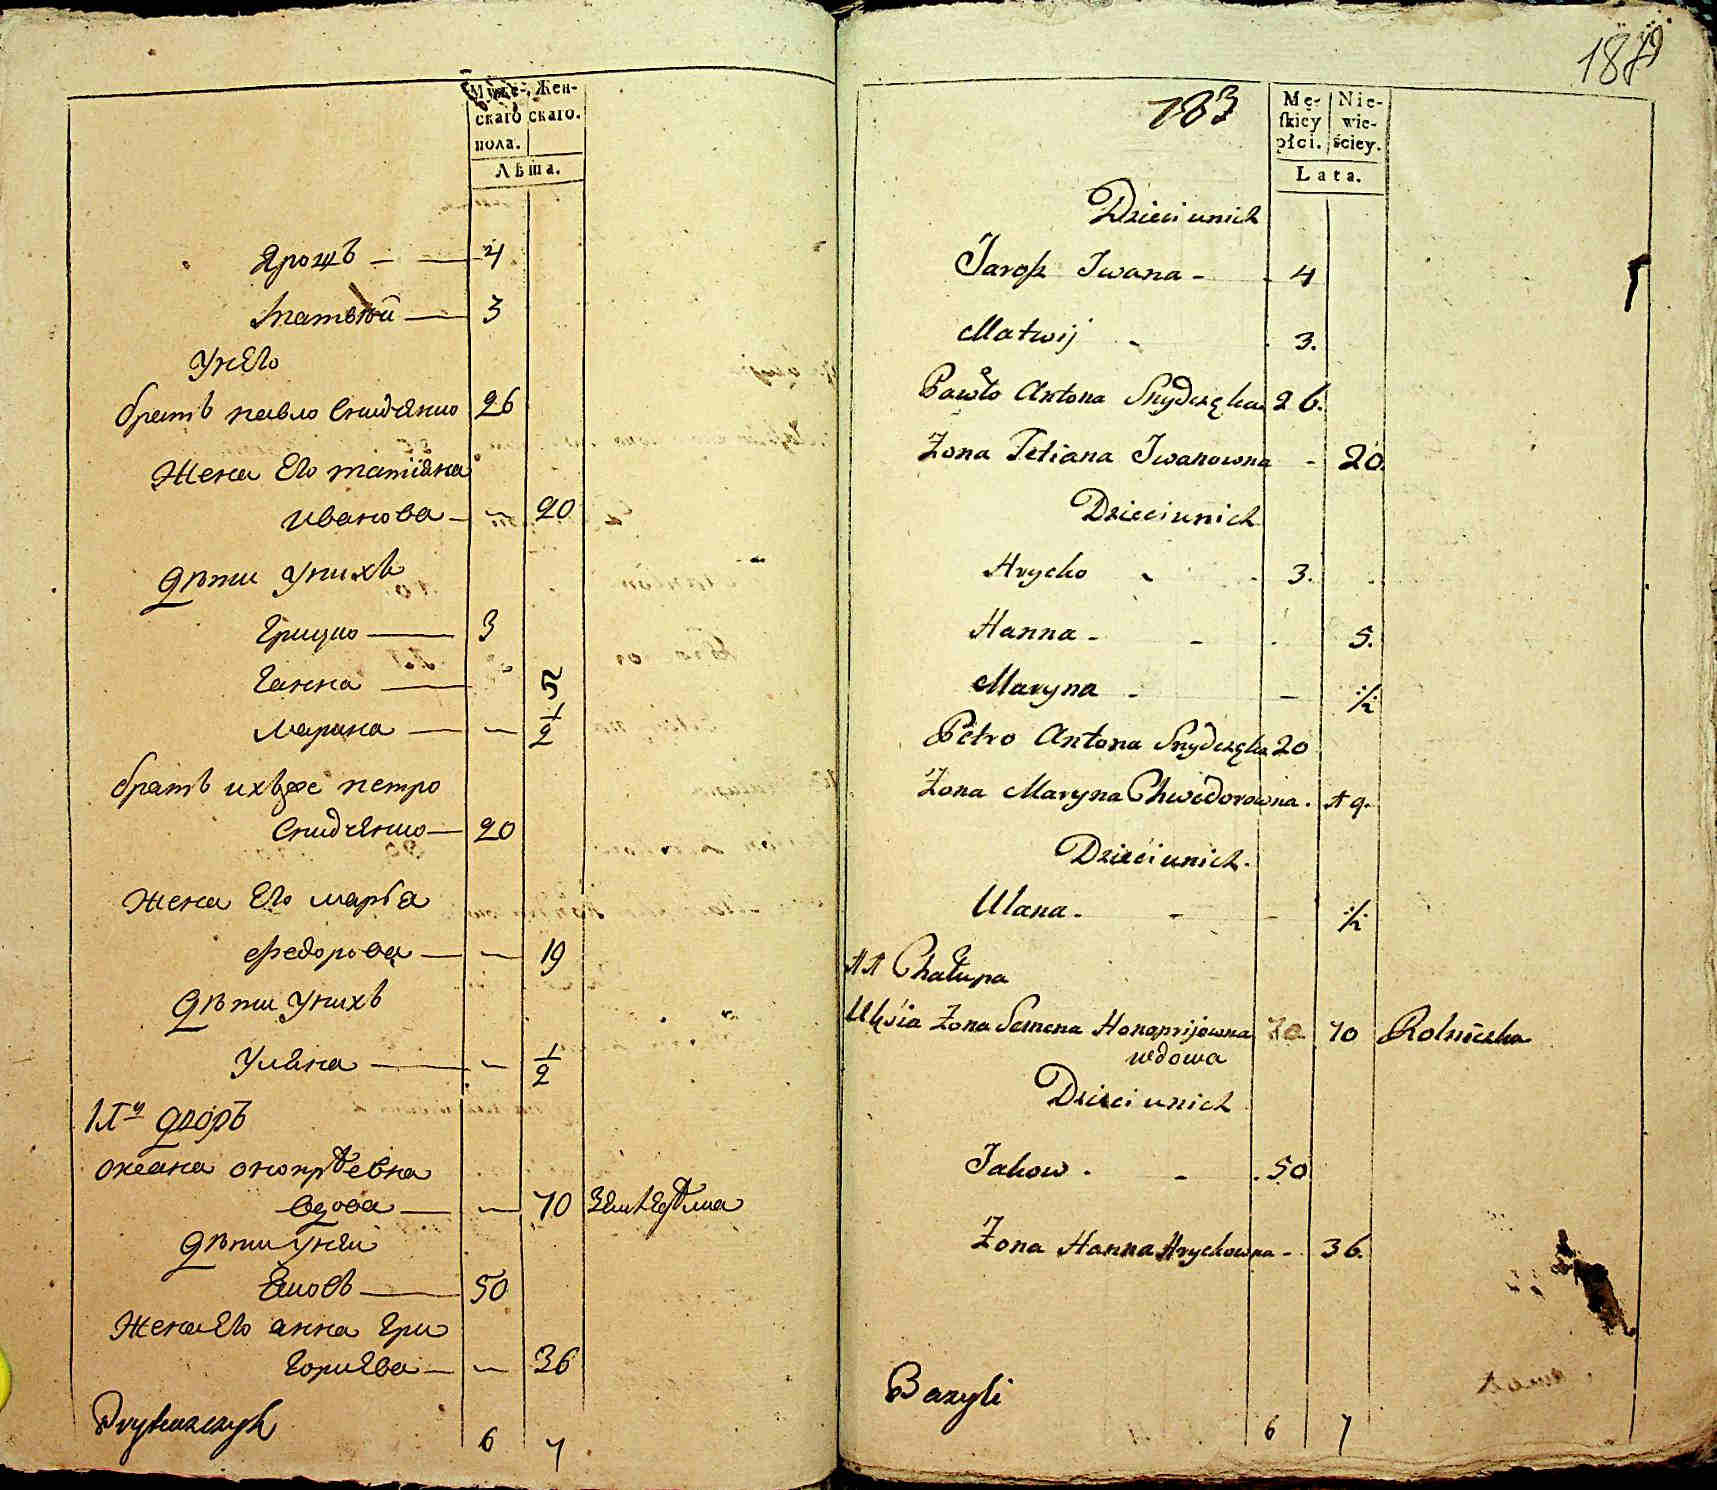 Муже- Жен-
скаго скаго.
пола.
Лѣта.
Ярошъ — 4
Матвѣй — 3
У него
братъ павло Снидченко 26
Жена Его татіяна
иванова — 20
дѣти у нихъ
грицко — 3
ганна — 5
марина — 1/2
братъ ихъ же петро
Снидченко — 20
Жена Его марья
федорова — 19
дѣти у нихъ
Уляна — 1/2
дворъ
онопрѣевна
вдова — 70
дѣти у нея
Яковъ — 50
Жена Его анна гри
горьева — 36
6 7
189
183
Mę- Nie-
skiey wie-
płci. ściey.
Lata.
Dzieci unich
Jarosz Iwana - 4
Matwij - 3.
Pawło Antona Snydczęka 26.
Żona Tetiana Iwanowna - 20.
Dzieci unich
Hrycko - 3.
Hanna - 5.
Maryna - 1/2
Petro Antona Snydczęka 20
Żona Maryna Chwedorowna. 19.
Dzieci unich.
Ulana - 1/2
11 Chałupa
Żona Semena Honoprijowna 70 Rolniczka
wdowa
Dzieci unich
Jakow - 50
Żona Hanna Hryckowna - 36.
Bazyli
6 7